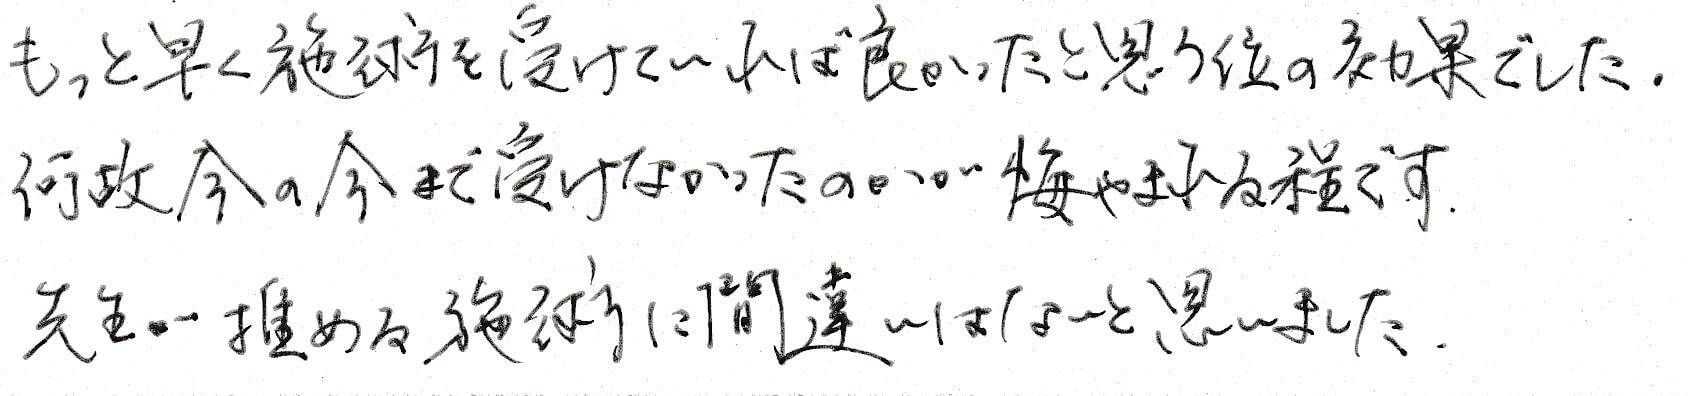 もっと早く施術を受けていれば良かったと思う位の効果でした.
何故今の今まで受けなかったのかが悔やまれる程です.
先生が推める施術に間違いはないと思いました.